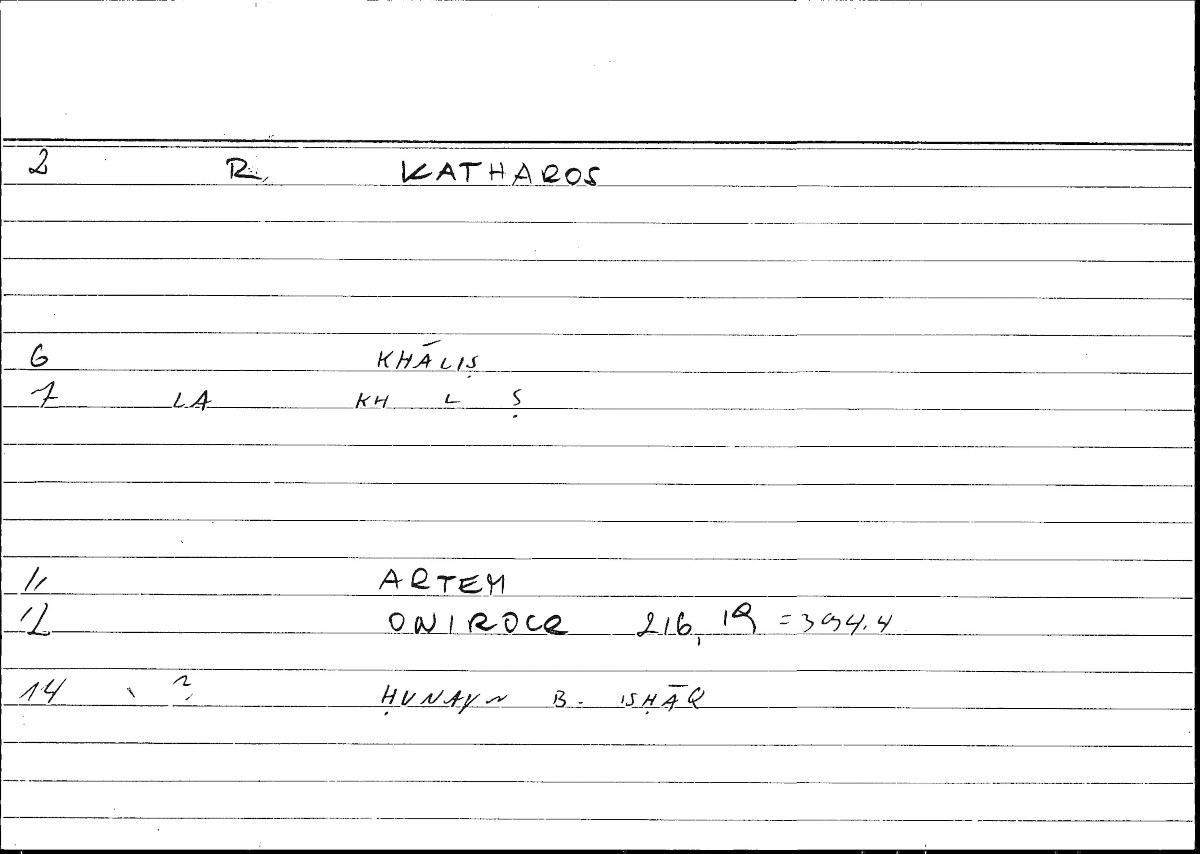 2 R KATHAROS
6 KHĀLIṢ
7 LA KH L Ṣ
11 ARTEM
12 ONIROCR 216,19 = 394.4
14 ? ḤUNAYN B. ISḤĀQ